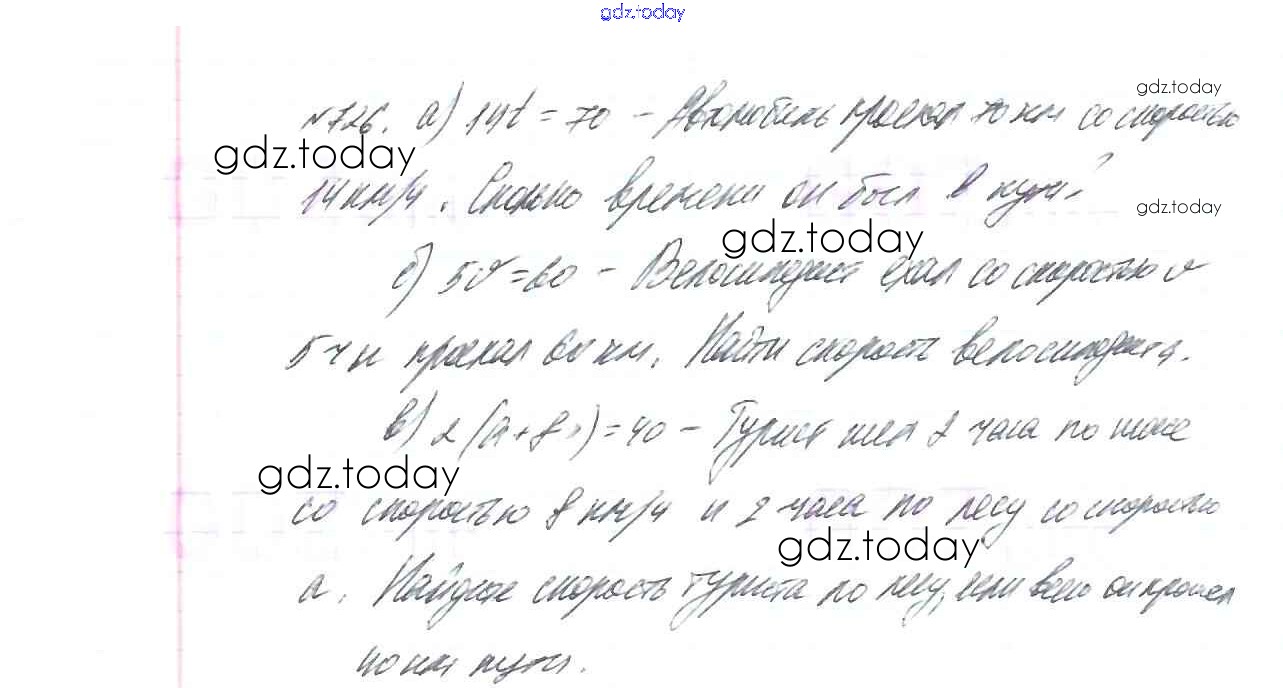 gdz.today
№726. а) 14t = 70 – Автомобиль проехал 70 км со скоростью
gdz.today
gdz.today
14 км/ч. Сколько времени он был в пути?
gdz.today
gdz.today
б) 5v = 60 – Велосипедист ехал со скоростью v
5 ч и проехал 60 км. Найти скорость велосипедиста.
в) 2(a + 8) = 40 – Турист шел 2 часа по
gdz.today
со скоростью 8 км/ч и 2 часа по лесу со скоростью
gdz.today
a. Найдите скорость туриста по лесу, если всего он прошел
40 км пути.